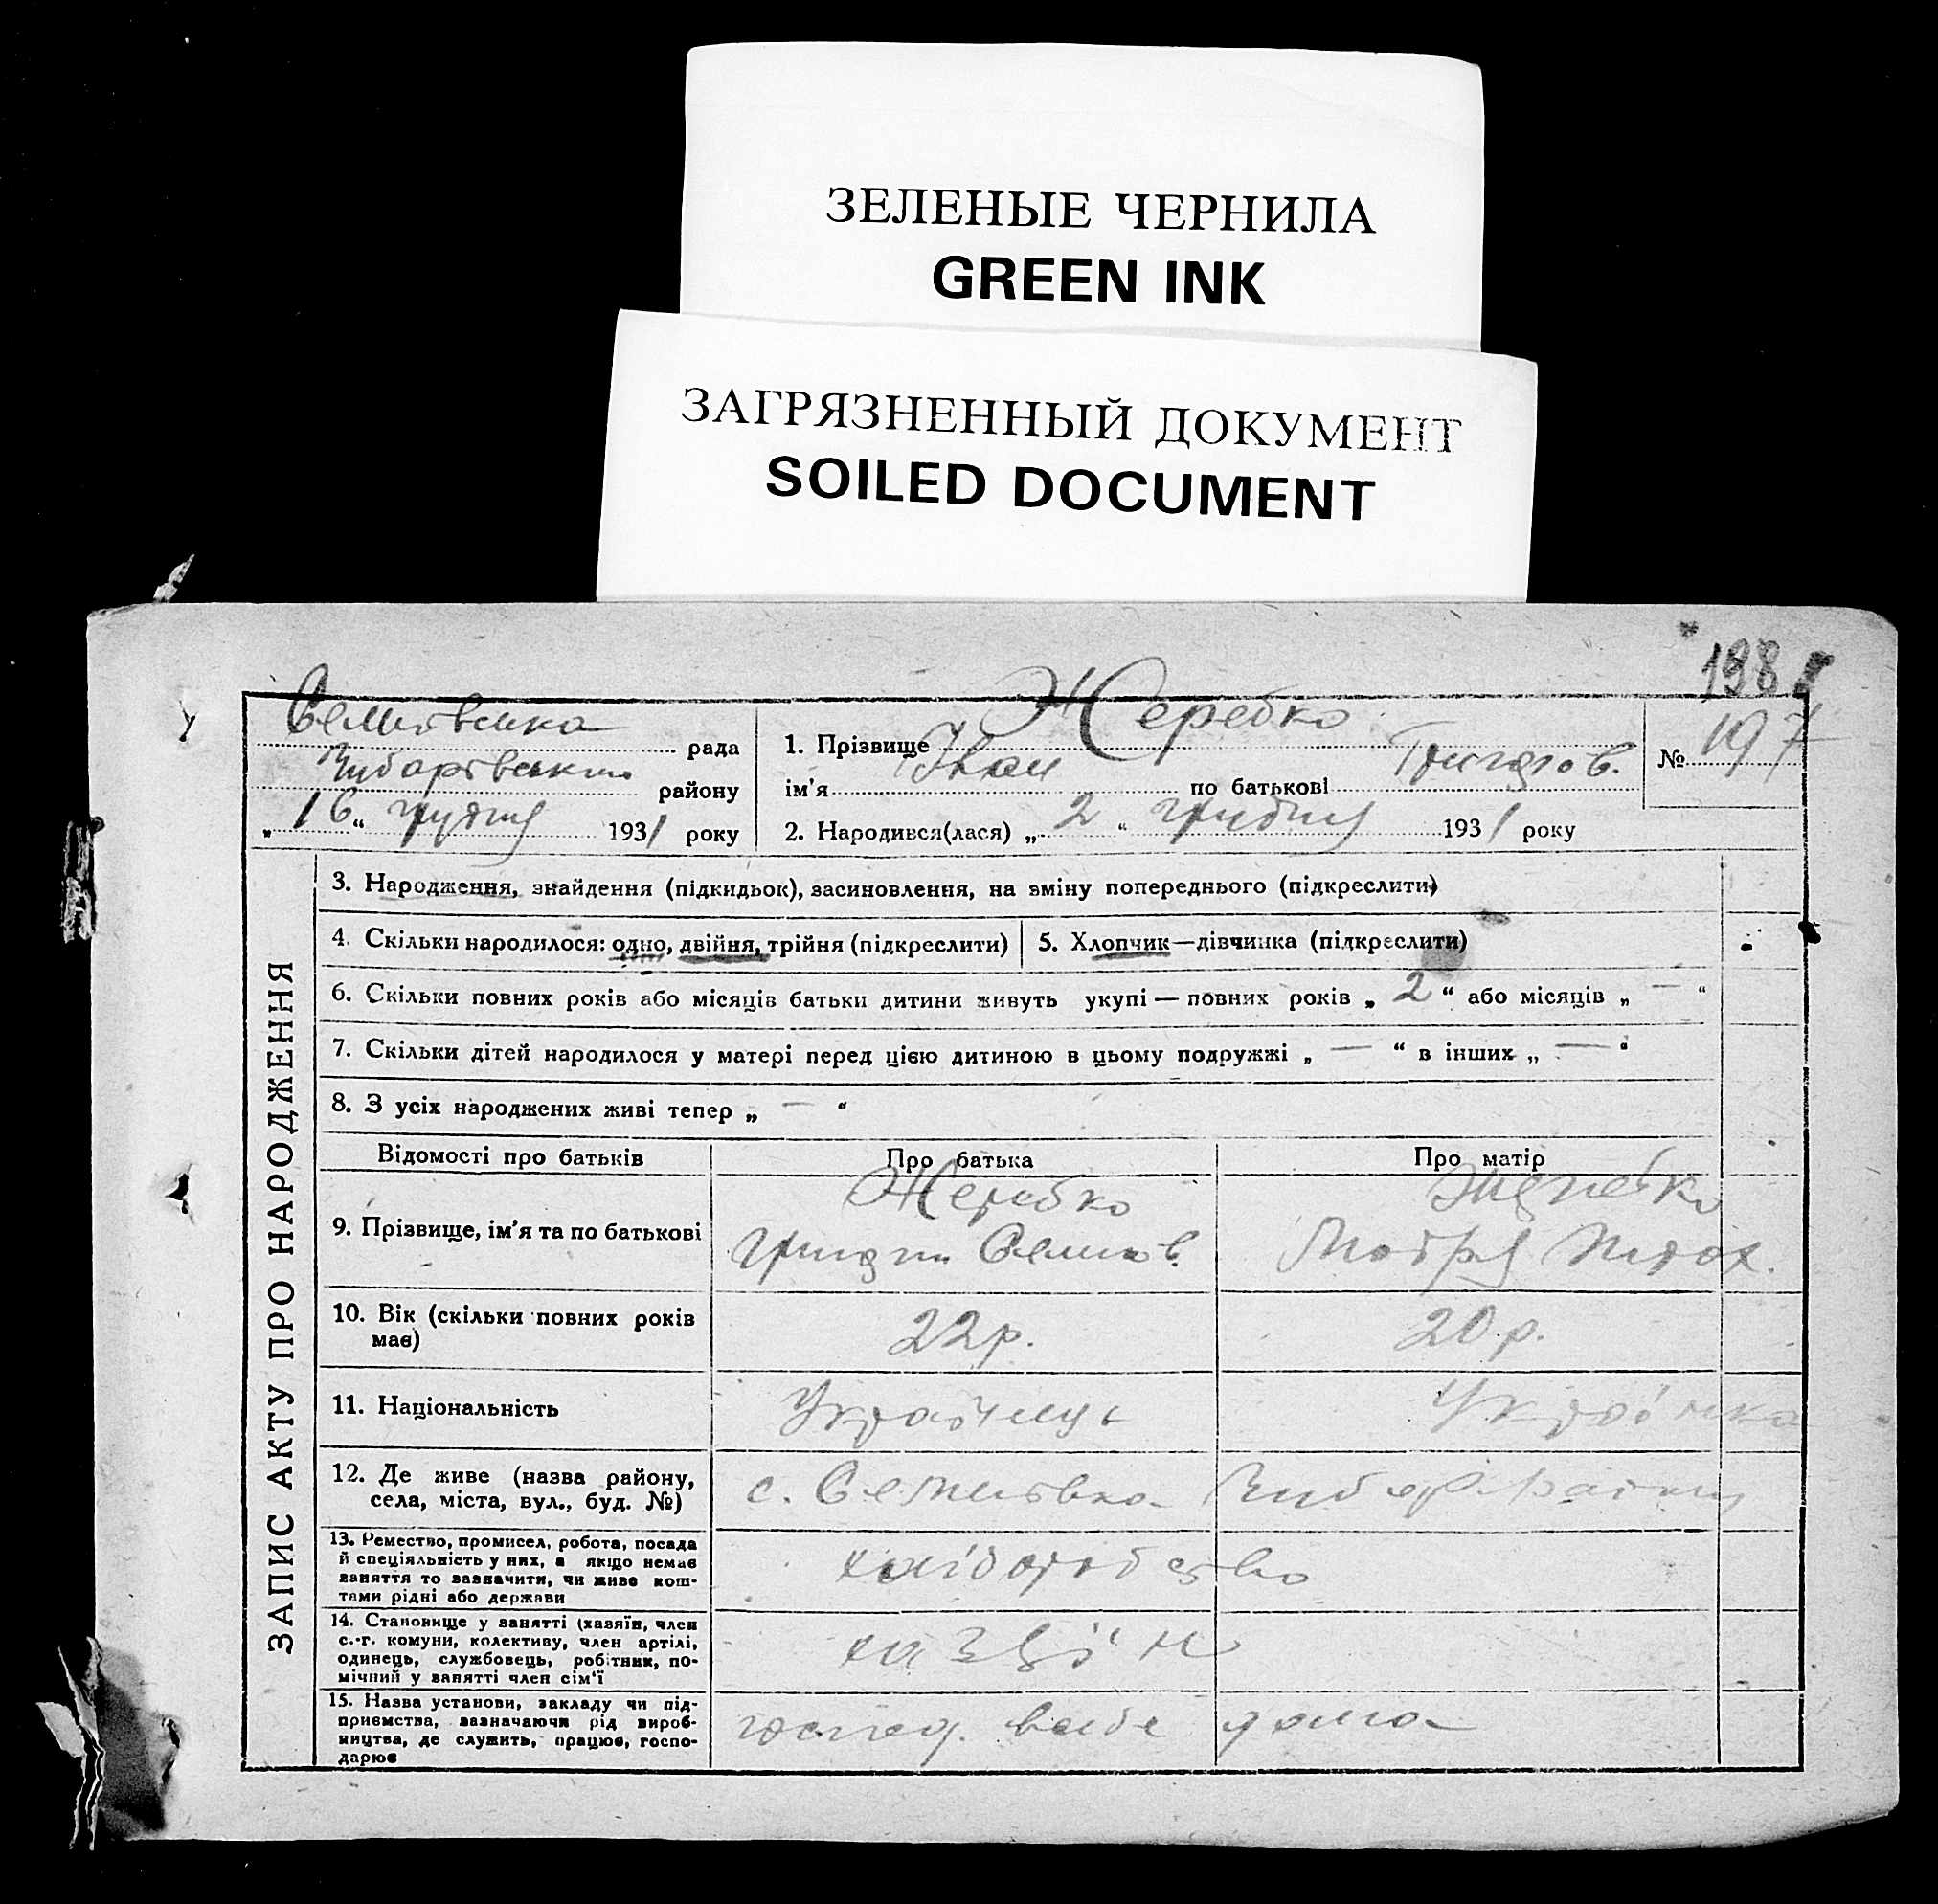 ЗЕЛЕНЫЕ ЧЕРНИЛА
GREEN INK
ЗАГРЯЗНЕННЫЙ ДОКУМЕНТ
SOILED DOCUMENT
198
ЗАПИС АКТУ ПРО НАРОДЖЕННЯ
рада
району
„16“ грудня 1931 року
1. Прізвище Жеребко
ім'я Іван по батькові Григоров.
2. Народився(лася) „2“ грудня 1931 року
№ 197
3. Народження, знайдення (підкидьок), засиновлення, на зміну попереднього (підкреслити)
4. Скільки народилося: одно, двійня, трійня (підкреслити)
5. Хлопчик—дівчинка (підкреслити)
6. Скільки повних років або місяців батьки дитини живуть укупі — повних років „2“ або місяців „—“
7. Скільки дітей народилося у матері перед цією дитиною в цьому подружжі „—“ в інших „—“
8. З усіх народжених живі тепер „—“
Відомості про батьків
Про батька
Про матір
9. Прізвище, ім'я та по батькові
Жеребко
Семенов.
Жеребко
10. Вік (скільки повних років
має)
22р.
20р.
11. Національність
Українець
Українка
12. Де живе (назва району,
села, міста, вул., буд. №)
с.
13. Ремество, промисел, робота, посада
й спеціяльність у них, а якщо немає
заняття то зазначити, чи живе кош-
тами рідні або держави
хліборобство
14. Становище у занятті (хазяїн, член
с.-г. комуни, колективу, член артілі,
одинець, службовець, робітник, по-
мічний у занятті член сім'ї
хазяїн
15. Назва установи, закладу чи під-
приємства, зазначаючи рід вироб-
ництва, де служить, працює, госпо-
дарює
господ. вдома